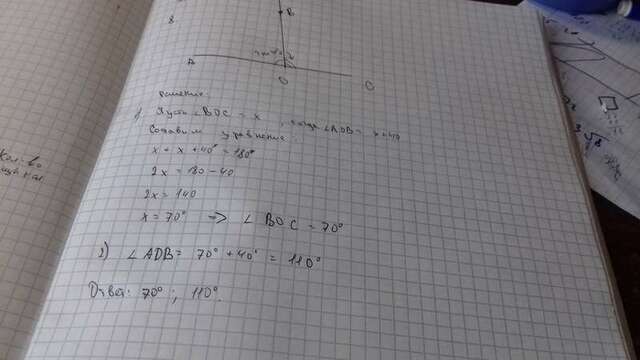 8
B
A
O
C
Решение:
1) Пусть ∠BOC = x, тогда ∠AOB = x+40
Составим уравнение:
x + x + 40° = 180°
2x = 180 - 40
2x = 140
x = 70° => ∠ BOC = 70°
2) ∠AOB = 70° + 40° = 110°
Ответ: 70°; 110°.
Кол-во